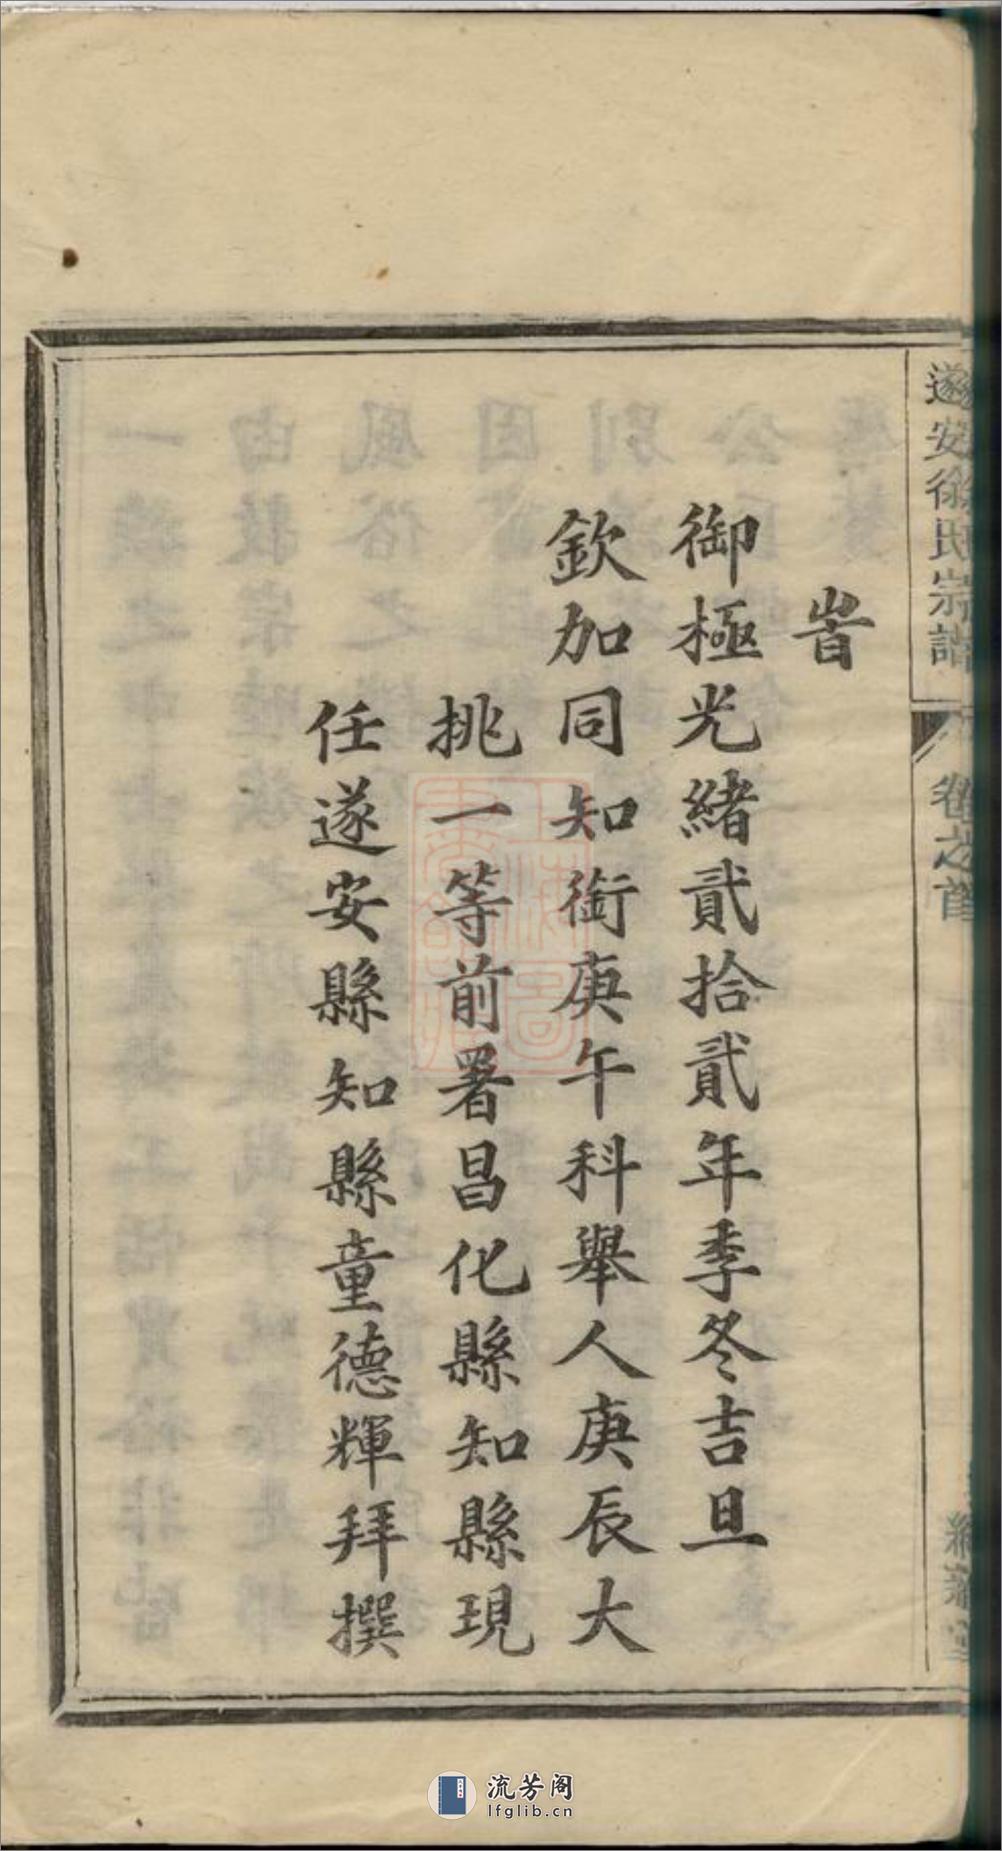 旹
御極光緒貳拾貳年季冬吉旦
欽加同知銜庚午科舉人庚辰大
挑一等前署昌化縣知縣現
任遂安縣知縣童德輝拜撰
遂安徐氏宗譜
卷之首
流芳阁
lfglib.cn